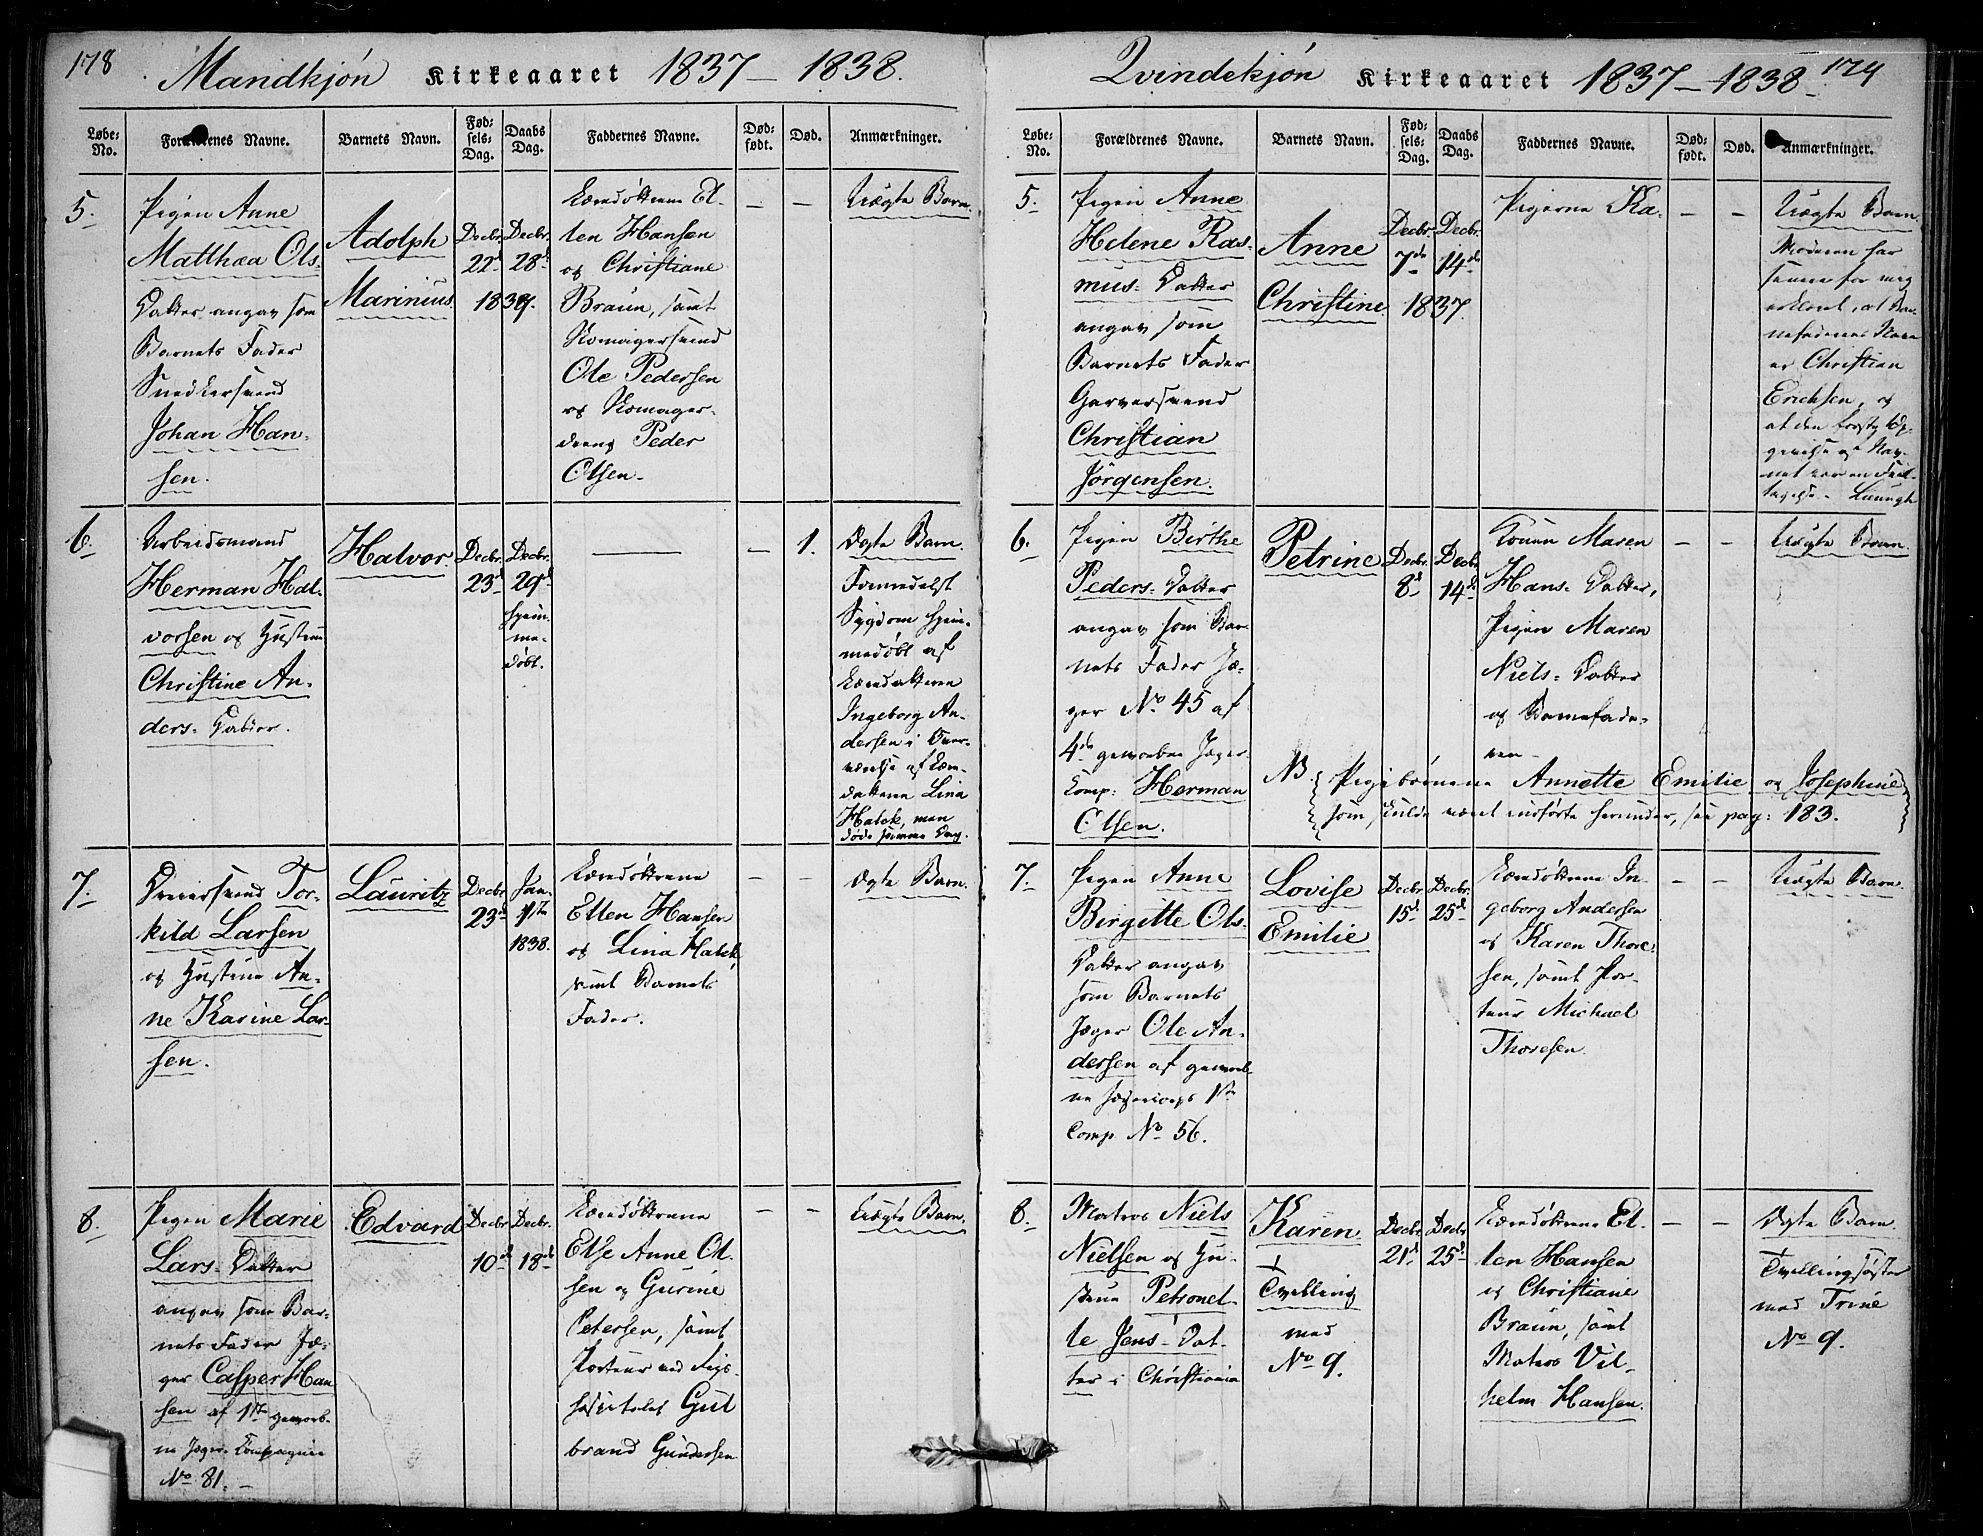 178
Mandkjön Kirkeaaret 1837 – 1838.
Løbe-No. Forældrenes Navne. Barnets Navn. Fød-sels-Dag. Daabs Dag. Faddernes Navne. Død-født. Død. Anmærkninger.
5.
Pigen Anne
Matthæa Ols-
Datter angav som
Barnets Fader
Snedkersvend
Johan Han-
sen.
Adolph
Marinius
Decbr.
22d
Decbr.
28d
1837.
Læredöttrene El-
len Hansen
og Christiane
Braun, samt
Skomagersvend
Ole Pedersen
og Skomager-
dreng Peder
Olsen.
— —
Uægte Barn.
6.
Arbeidsmand
Herman Hal-
vorsen og Hustru
Christine An-
ders-Datter.
Halvor.
Decbr.
23d
Decbr.
29d
hjem-
me-
döbt.
—
— 1.
Ægte Barn.
Formedelst
Sygdom hjem-
medöbt af
Læredatteren
Ingeborg An-
dersen i Over-
værelse af Lære-
datteren Lina
Halck, men
döde samme Dag.
7.
Dreiersvend Tor-
kild Larsen
og Hustrue An-
ne Karine Lar-
sen.
Lauritz
Decbr.
23d
Jan.
1ste
1838.
Læredöttrene
Ellen Hansen
og Lina Halck,
samt Barnets
Fader.
— —
Ægte Barn.
8.
Pigen Marie
Lars-Datter
angav som Bar-
nets Fader Jæ-
ger Casper Han
sen af 1ste gevorb-
ne Jæger-Compagnie
No 81.
Edvard
Decbr.
10d
Decbr.
18d
Læredöttrene
Else Anne Ol-
sen og Gurine
Petersen, samt
Porteur ved Rigs-
hospitalet Gul
brand Gundersen
— —
Uægte Barn.
Qvindekjön Kirkeaaret 1837 – 1838 179
Løbe-No. Forældrenes Navne. Barnets Navn. Fød-sels-Dag. Daabs Dag. Faddernes Navne. Død-født. Død. Anmærkninger.
5.
Pigen Anne
Helene Ras-
mus-Datter
angav som
Barnets Fader
Garversvend
Christian
Jörgensen.
Anne
Christine
Decbr.
7de
Decbr.
14de
1837.
Pigerne Ka-
— —
Uægte Barn
Moderen har
senere for mig
erklæret, at Bar-
nefaderens Navn
er Christian
Erichsen, og
at den förste Op-
givelse af Nav-
net var en Feil-
tagelse.
6.
Pigen Birthe
Peders-Datter
angav som Bar-
nets Fader Jæ-
ger No 45 af
4de gevorbne Jæger
Comp: Herman
Olsen.
Petrine
Decbr.
8d
Decbr.
14d
Konen Maren
Hans-Datter,
Pigen Maren
Niels-Datter
og Barnefade-
ren
— —
Uægte Barn.
NB. Pigebörnene Annette Emilie og Josephine
som skulde været indförte herunder, see pag: 183.
7.
Pigen Anne
Birgitte Ols-
Datter angav
som Barnets
Jæger Ole An-
dersen af gevorb-
ne Jægercorps 1ste
Comp. No 56.
Lovise
Emilie
Decbr.
15d
Decbr.
25d
Læredöttrene In-
geborg Andersen
og Karen Thore-
sen, samt Por-
teur Michael
Thoresen.
— —
Uægte Barn.
8.
Matros Niels
Nielsen og Hu-
strue Petronel-
le Jens-Dat-
ter i Christiania
Karen
+
Tvilling
med
No 9.
Decbr.
21d
Decbr.
25d
Læredöttrene El-
len Hansen
og Christiane
Braun, samt
Matros Vil-
helm Hansen.
— —
Ægte Barn.
Tvillingsöster
med Trine
No 9.